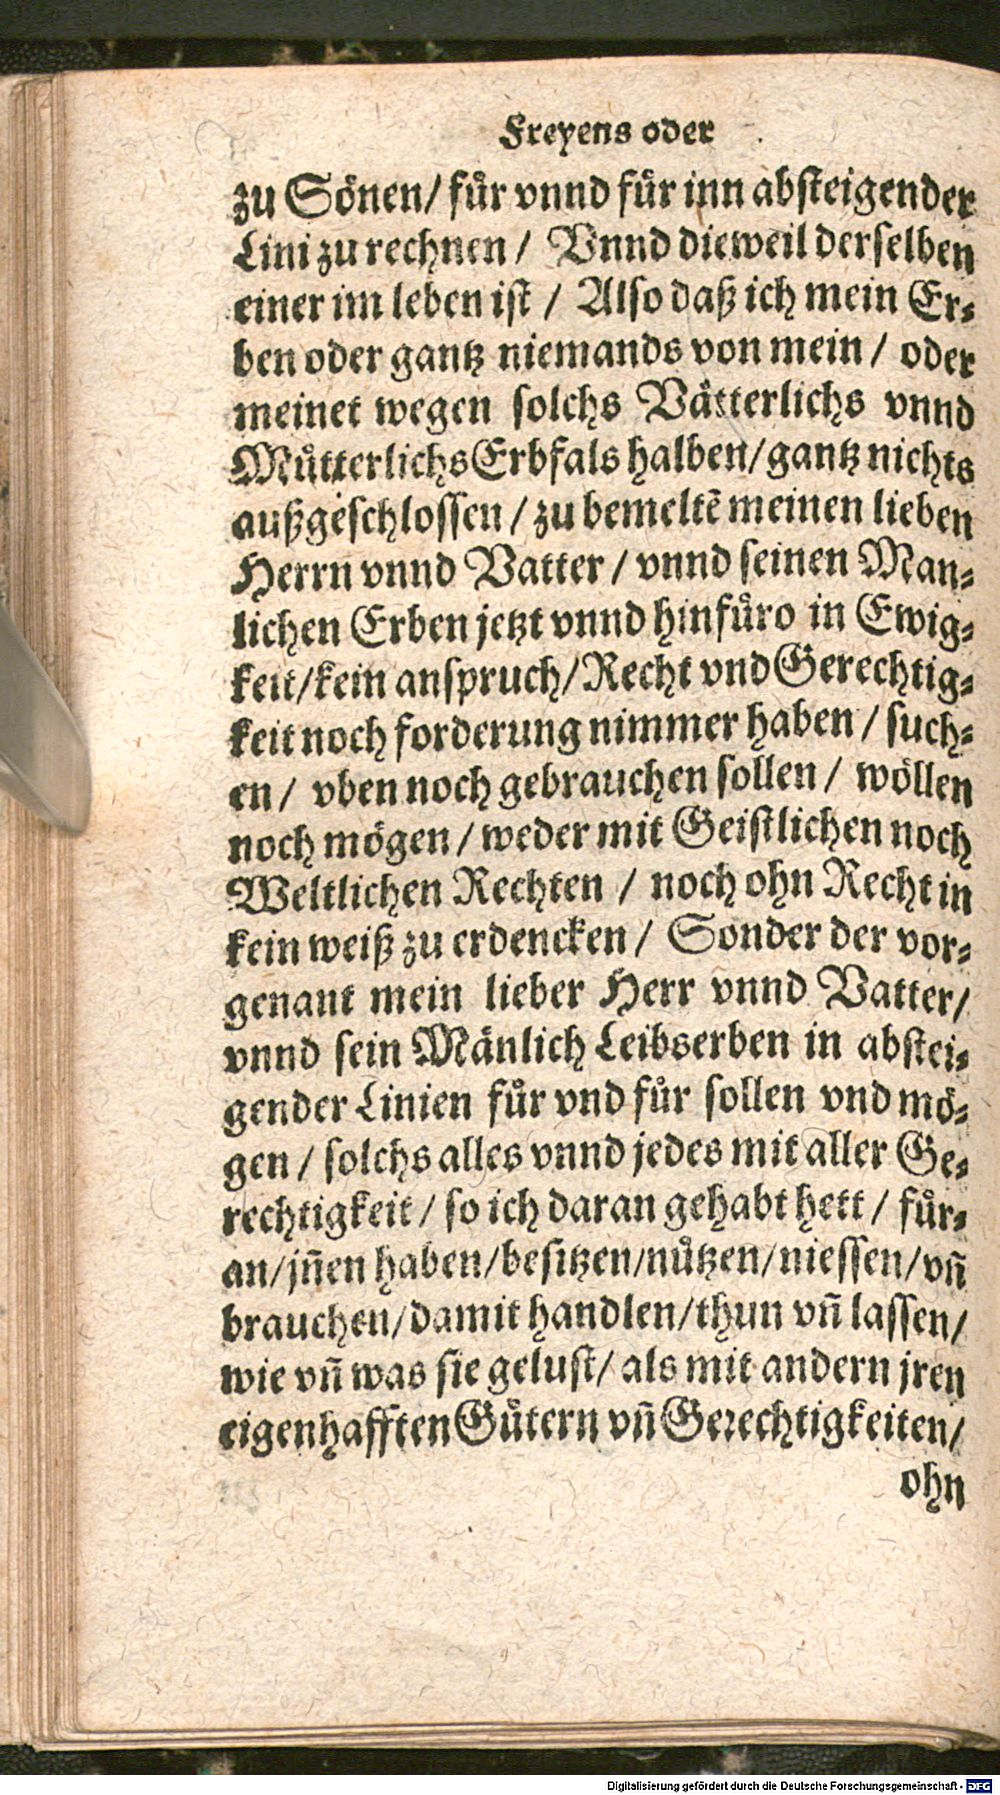 Freyens oder
zu Sönen/ fuͤr vnnd fuͤr inn absteigender
Lini zu rechnen/ Vnnd dieweil derselben
einer im leben ist / Also daß ich mein Er-
ben oder gantz niemands von mein / oder
meinet wegen solchs Vätterlichs vnnd
Muͤtterlichs Erbfals halben/ gantz nichts
außgeschlossen / zu bemeltē meinen lieben
Herrn vnnd Vatter / vnnd seinen Man-
lichen Erben jetzt vnnd hinfuͤro in Ewig-
keit/ kein anspruch/ Recht vnd Gerechtig-
keit noch forderung nimmer haben / such-
en / vben noch gebrauchen sollen / wöllen
noch mögen / weder mit Geistlichen noch
Weltlichen Rechten / noch ohn Recht in
kein weiß zu erdencken / Sonder der vor-
genant mein lieber Herr vnnd Vatter/
vnnd sein Mänlich Leibserben in abstei-
gender Linien fuͤr vnd fuͤr sollen vnd mö-
gen / solchs alles vnnd jedes mit aller Ge-
rechtigkeit / so ich daran gehabt hett / fuͤr-
an/ jn̄en haben/ besitzen/ nuͤtzen/ niessen/ vn̄
brauchen/ damit handlen/ thun vn̄ lassen/
wie vn̄ was sie gelust/ als mit andern jren
eigenhafften Guͤtern vn̄ Gerechtigkeiten/
ohn
Digitalisierung gefördert durch die Deutsche Forschungsgemeinschaft - DFG